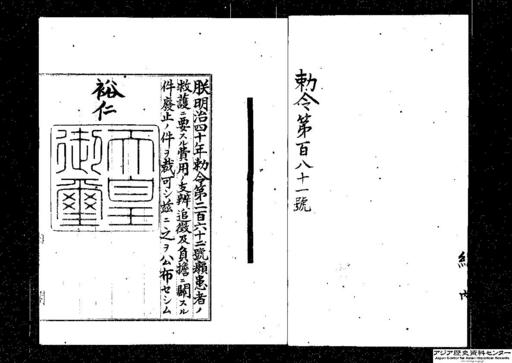 勅令第百八十一號
朕明治四十年勅令第二百六十二號癩患者ノ
救護ニ要スル費用ノ支辨追徴及負擔ニ關スル
件廢止ノ件ヲ裁可シ茲ニ之ヲ公布セシム
裕仁
天皇
御璽
アジア歴史資料センター
Japan Center for Asian Historical Records